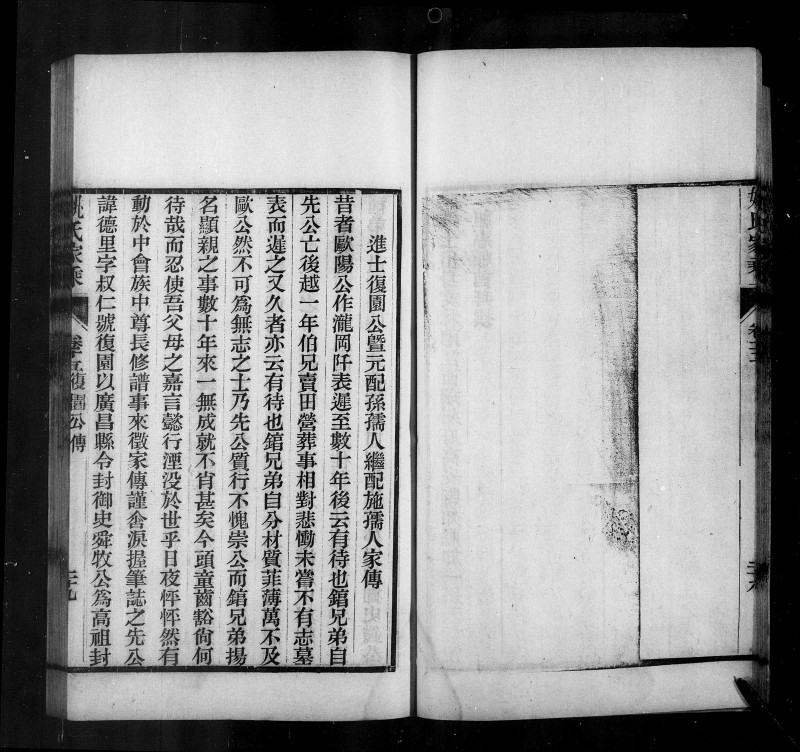 進士復園公暨元配孫孺人繼配施孺人家傳
昔者歐陽公作瀧岡阡表遲至數十年後云有待也錧兄弟自
先公亡後越一年伯兄賣田營葬事相對悲慟未嘗不有志墓
表而遲之又久者亦云有待也錧兄弟自分材質菲薄萬不及
歐公然不可為無志之士乃先公質行不愧崇公而錧兄弟揚
名顯親之事數十年來一無成就不肖甚矣今頭童齒豁尙何
待哉而忍使吾父母之嘉言懿行湮没於世乎日夜怦怦然有
動於中會族中尊長修譜事來徵家傳謹含淚握筆誌之先公
諱德里字叔仁號復園以廣昌縣令封御史舜牧公為高祖封
姚氏家乘
復園公傳